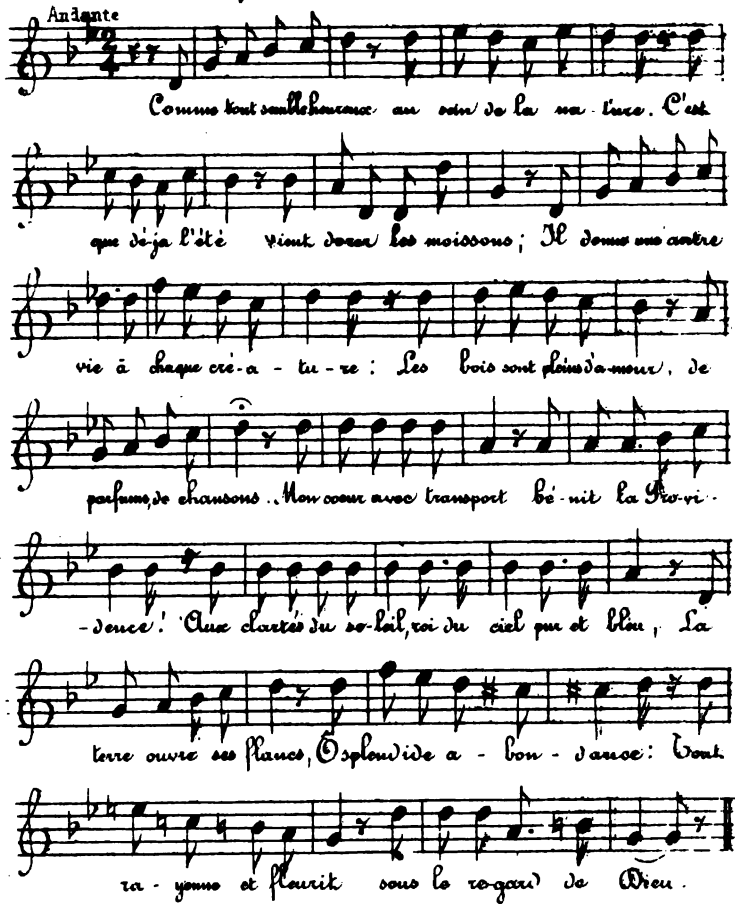 Andante
2
4
Comme tout semble heureux au sein de la na - ture. C'est
que dé-ja l'été vient dorer les moissons; Il donne une autre
vie à chaque cré - a - tu - re : Les bois sont pleins d'a-mour, de
parfums, de chansons.. Mon coeur avec transport bé - nit la Pro-vi -
-dence! Aux clartés du so-leil, roi du ciel pur et bleu, La
terre ouvre ses flancs, O splendide a - bon - dance: Tout
ra - yonne et fleurit sous le regard de Dieu.